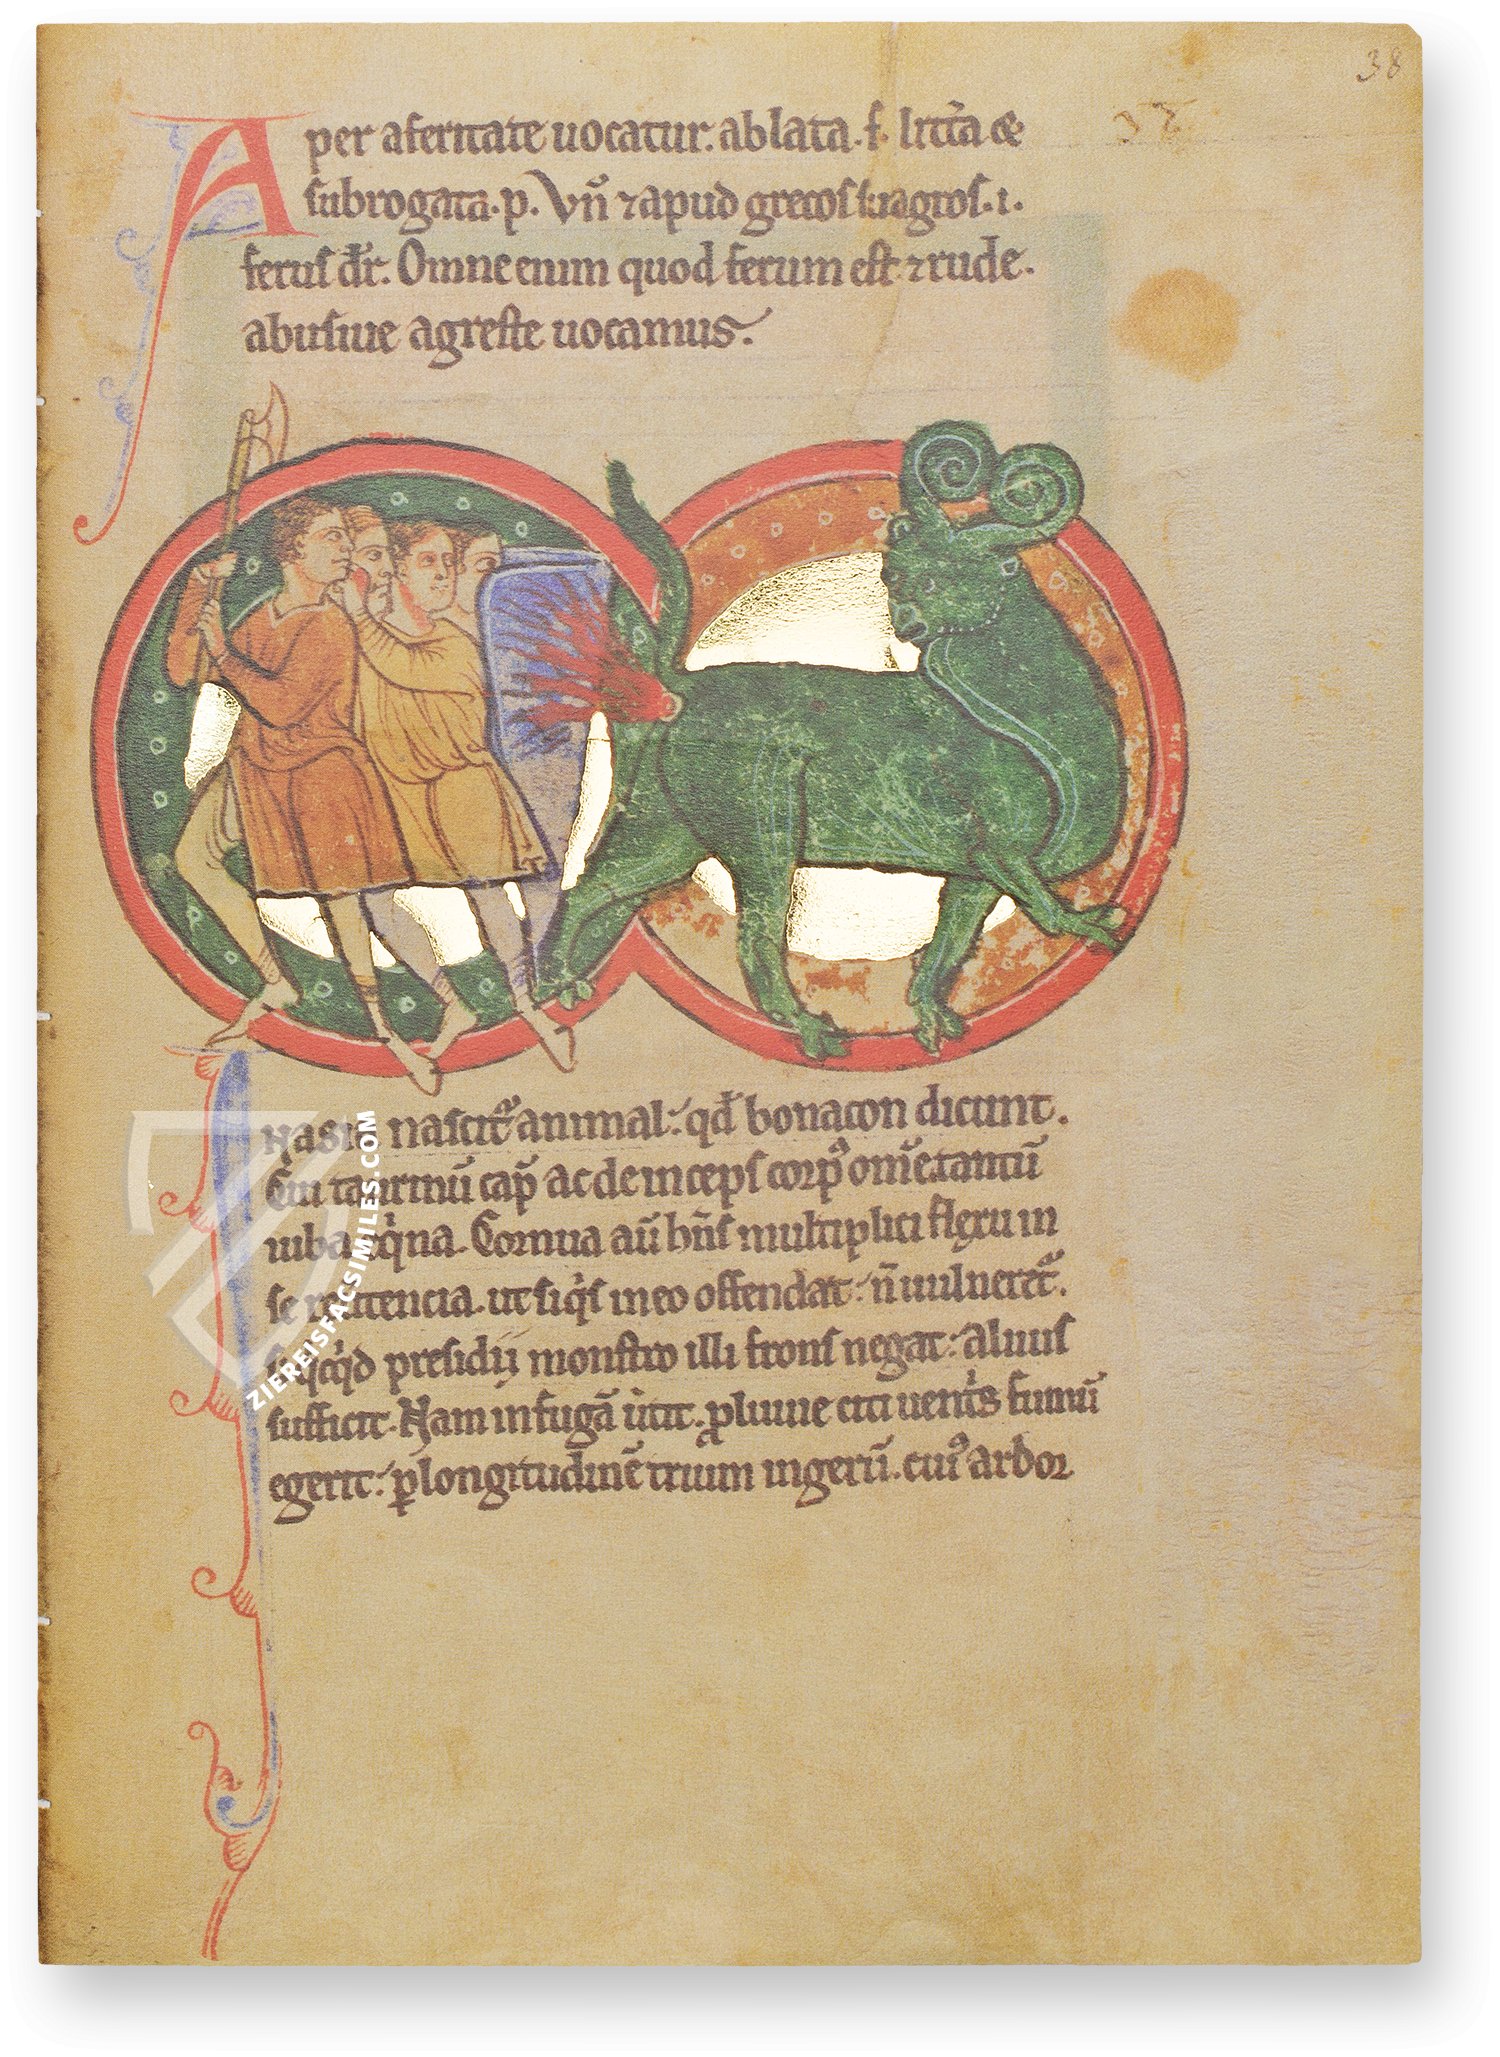 38
32
Aper aferitate uocatur. ablata .f. litt̃a &
subrogata .p. Vñ ⁊ apud grecos suagros .i.
ferus dr̃. Omne enim quod ferum est ⁊ rude.
abusiue agreste uocamus.
IN asia nascit᷑ animal: qd̃ bonacon dicunt.
Cui taurinũ cap̃ ac deinceps corp᷒ om̃e. tantũ
iuba eq̇na. Cornua aũ hñs multiplici flexu in
se reuitencia. ut siq̇s in eo offendat: ñ uulneret᷑.
S; q̇cq̇d presidij monstro illi frons negat: aluus
sufficit. Nam in fugã u̇tit᷑. ꝓluuie citi uenṫs fumũ
egerit: ꝑ longitudinẽ trium iugerũ. cui᷒ ardor
ZIEREISFACSIMILES.COM